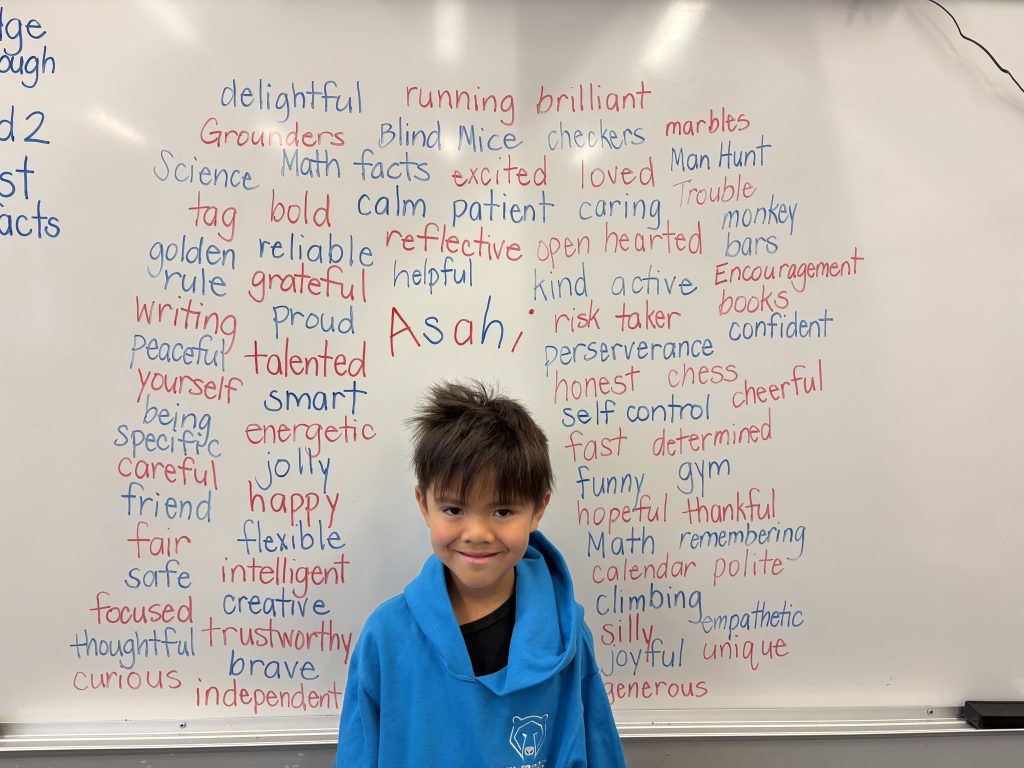 dge
ough
d 2
st
acts
delightful running brilliant
Grounders Blind Mice checkers marbles
Science Math facts excited loved Man Hunt
tag bold calm patient caring Trouble
golden reliable reflective open hearted monkey bars
rule grateful helpful kind active Encouragement
writing proud Asahi risk taker books
peaceful talented perserverance confident
yourself smart honest chess cheerful
being energetic self control
specific jolly fast determined
careful happy funny gym
friend flexible hopeful thankful
fair intelligent Math remembering
safe creative calendar polite
focused trustworthy climbing empathetic
thoughtful brave silly unique
curious independent joyful
generous